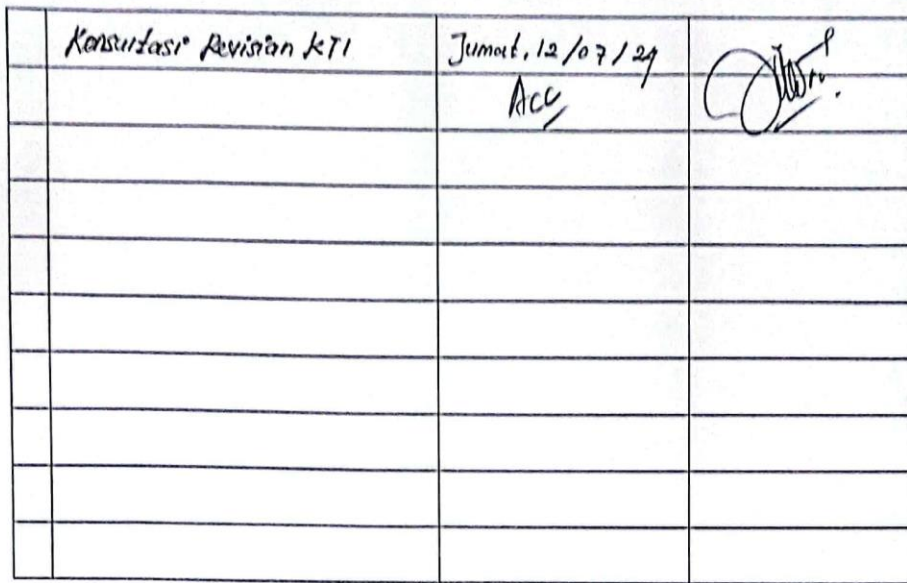 Konsultasi Revisian KTI
Jumat, 12/07/24
Acc